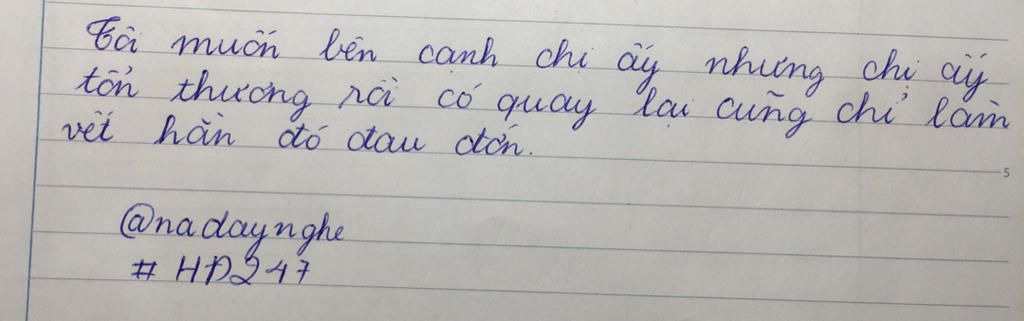 Tôi muốn bên cạnh chị ấy nhưng chị ấy
tổn thương rồi có quay lại cũng chỉ làm
vết hằn đó đau đớn.
5
@nadaynghe
# HĐ247